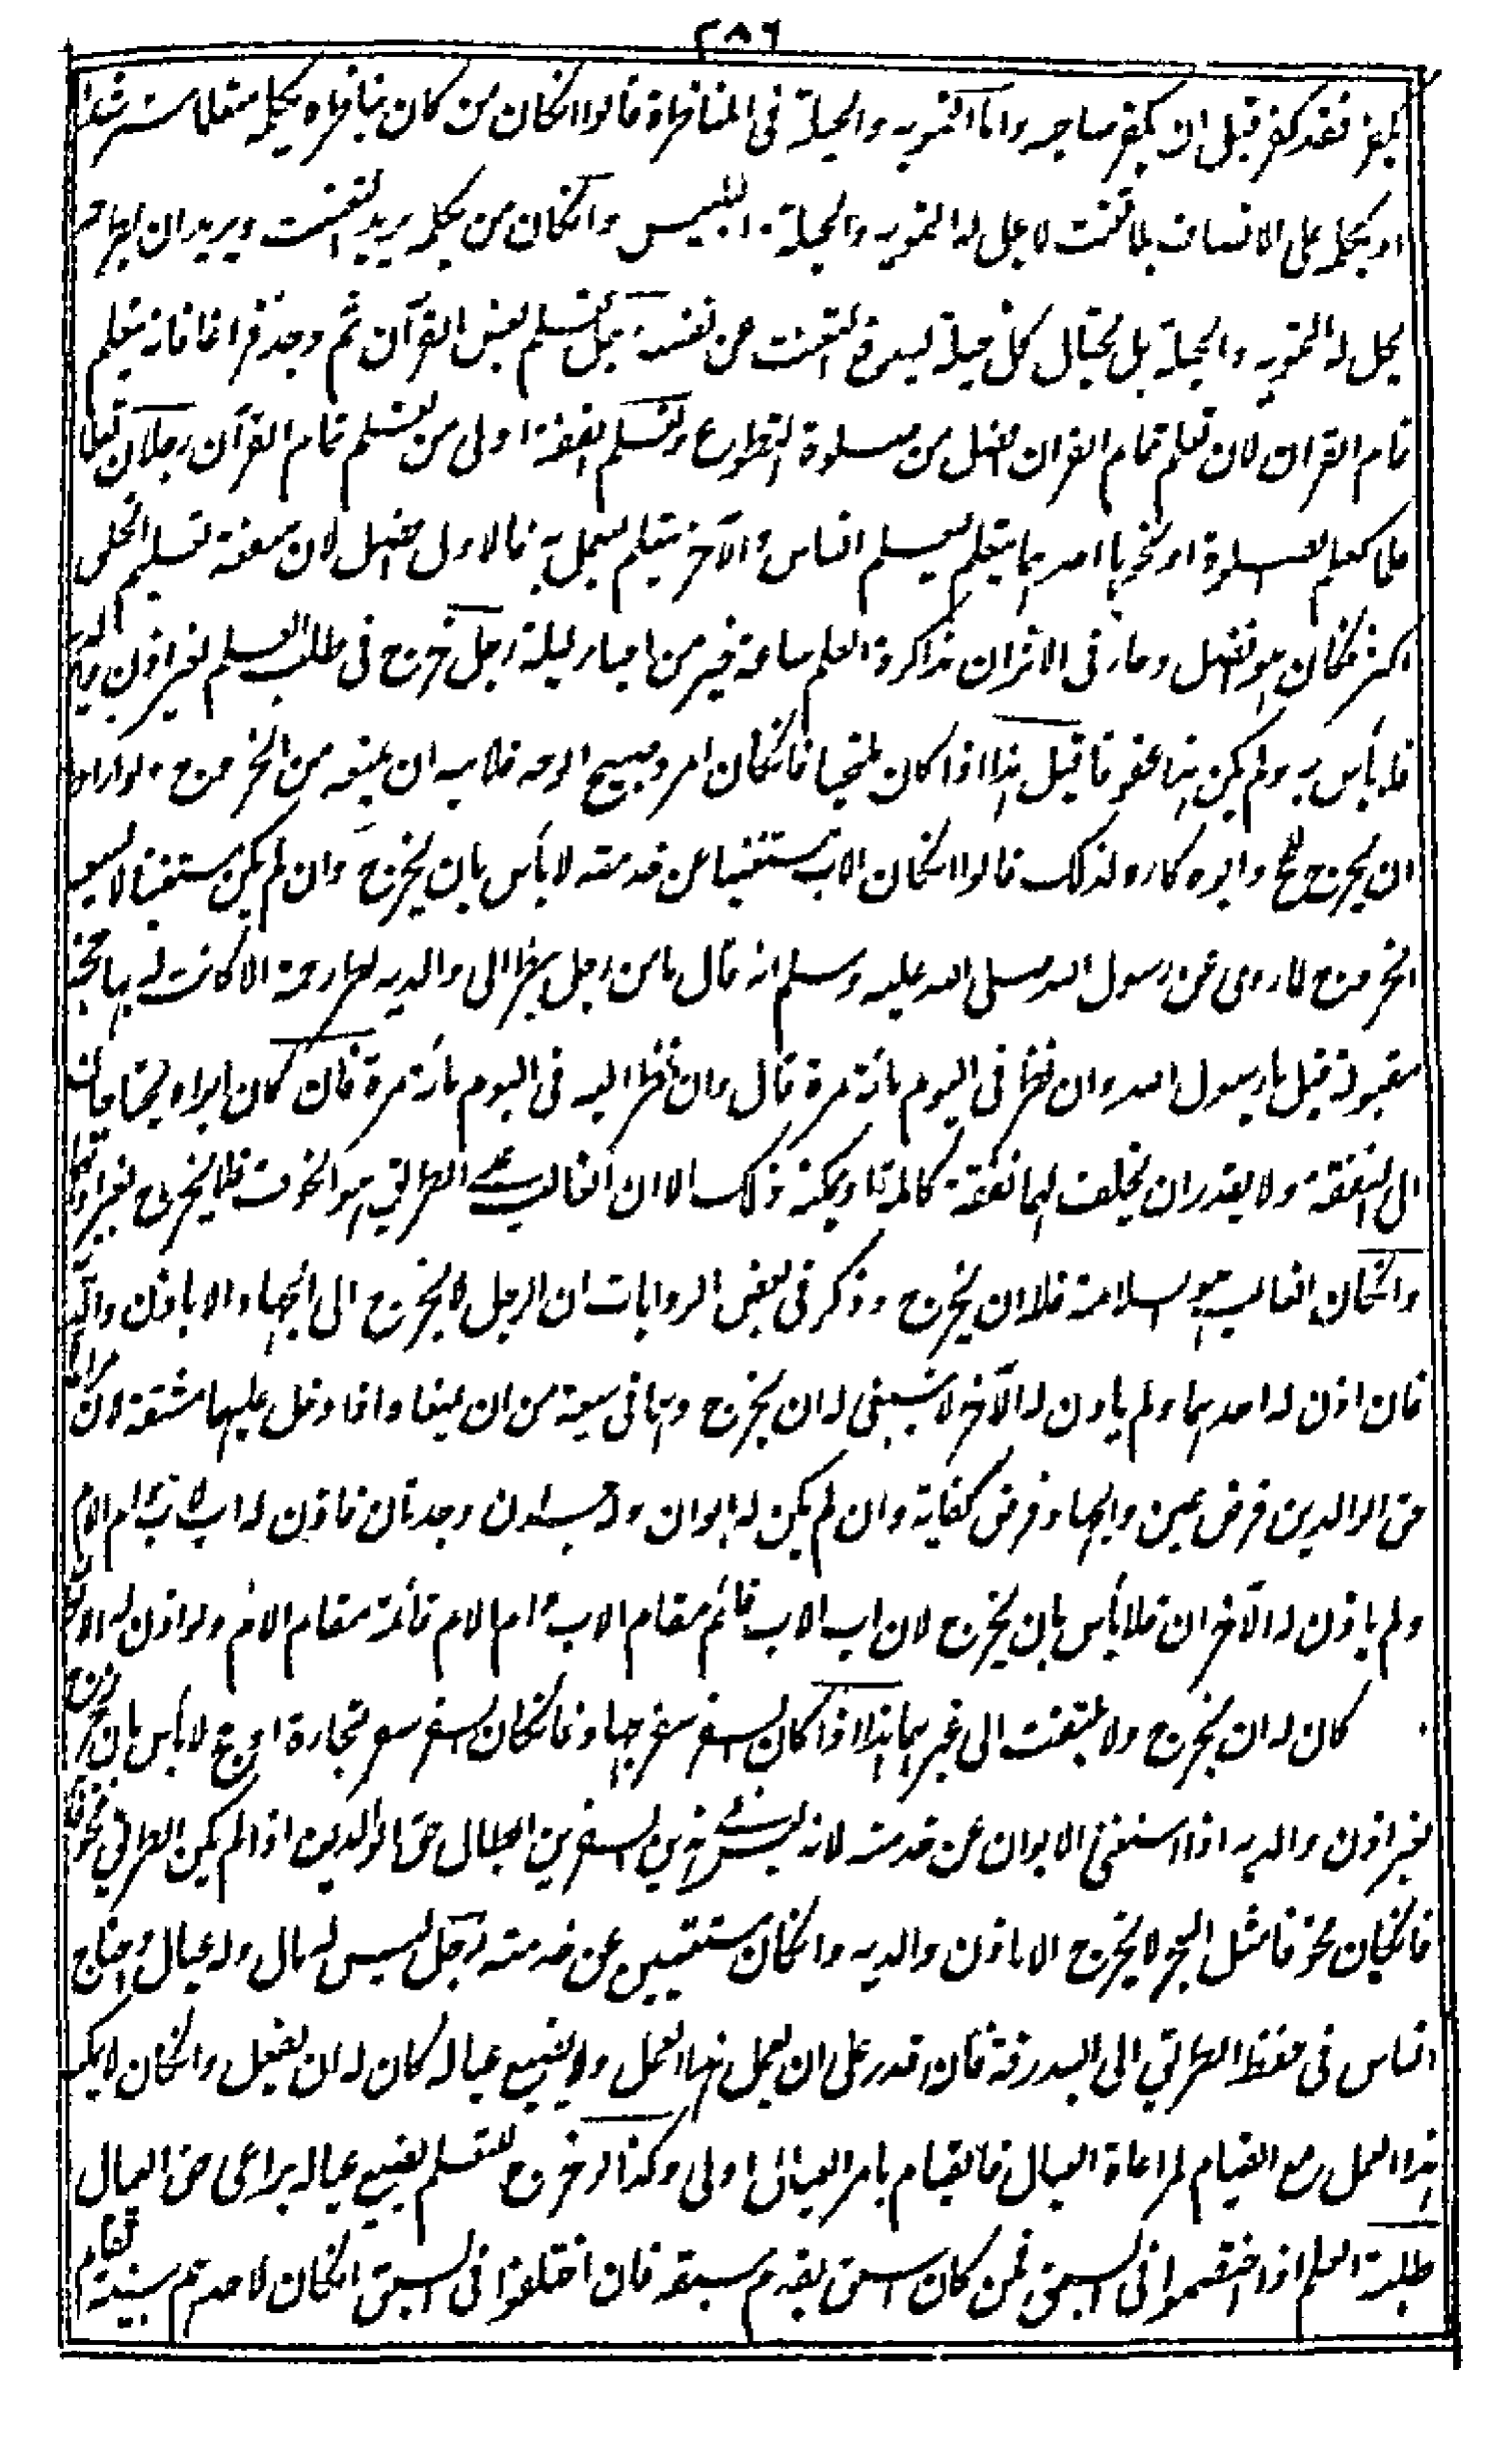 ٢٨٦
يكفر فقد كفر قبل ان يكفر صاحبه واما التمويه والحيلة فى المناظرة قالوا ان كان من كان يناظره يكلمه متعلما مسترشدا
او يكلمه على الانصاف بلا تعنت لا يحل له التمويه والحيلة والتلبيس وان كان من يكلمه يريد التعنت ويريد ان يطرحه
يحل له التمويه والحيلة بل يحتال كل حيلة ليدفع التعنت عن نفسه رجل تعلم بعض القرآن ثم وجد فراغا فانه يتعلم
تمام القران لان تعلم تمام القران افضل من صلوة التطوع وتعلم الفقه اولى من تعلم تمام القرآن رجلان تعلما
علما كعلم الصلوة او نحوها احدهما يتعلم ليعلم الناس والآخر يتعلم ليعمل به فالاول افضل لان منفعة تعليم الخلق
اكثر فكان هو افضل وجاء فى الاثر ان مذاكرة العلم ساعة خير من احياء ليلة رجل خرج فى طلب العلم بغير اذن والديه
فلا بأس به ولم يكن هذا عقوقا قيل هذا اذا كان ملتحيا فان كان امرد صبيح الوجه فلابيه ان يمنعه من الخروج ولو اراد
ان يخرج للحج وابوه كاره لذلك قالوا ان كان الاب مستغنيا عن خدمته لا بأس بان يخرج وان لم يكن مستغنيا لا يسعه
الخروج لما روى عن رسول الله صلى الله عليه وسلم انه قال ما من رجل ينظر الى والديه نظر رحمة الا كانت له بها حجة
مقبولة قيل يا رسول الله وان نظر فى اليوم مائة مرة قال وان نظر اليه فى اليوم مائة مرة فان كان ابواه يحتاجان
الى النفقة ولا يقدر ان يخلف لهما نفقة كاملة او يمكنه ذلك الا ان الغالب على الطريق هو الخوف فلا يخرج بغير اذنهما
وان كان الغالب هو السلامة فله ان يخرج وذكر فى بعض الروايات ان الرجل لا يخرج الى الجهاد الا باذن والديه
فان اذن له احدهما ولم ياذن له الآخر لا ينبغى له ان يخرج وهما فى سعة من ان يمنعاه اذا دخل عليهما مشقة لان مراعاة
حق الوالدين فرض عين والجهاد فرض كفاية وان لم يكن له ابوان وله جدان وجدتان فاذن له اب الاب وام الام
ولم ياذن له الآخران فلا بأس بان يخرج لان اب الاب قائم مقام الاب وام الام قائمة مقام الام ولو اذن له الابوان
كان له ان يخرج ولا يلتفت الى غيرهما هذا اذا كان السفر سفر جهاد فان كان السفر سفر تجارة او حج لا بأس بان يخرج
بغير اذن والديه اذا استغنى الابوان عن خدمته لانه ليس فى هذين السفرين ابطال حق الوالدين اذا لم يكن الطريق مخوفا
فان كان مخوفا مثل البحر لا يخرج الا باذن والديه وان كان مستغنيين عن خدمته رجل ليس له مال وله عيال واحتاج
الناس فى حفظ الطريق الى البدرقة فان قدر على ان يعمل هذا العمل ولا يضيع عياله كان له ان يفعل وان كان لا يمكنه
هذا العمل مع القيام لمراعاة العيال فالقيام بامر العيال اولى وكذا لو خرج للتعلم يضيع عياله يراعى حق العيال
طلبة العلم اذا اختصموا فى السبق فمن كان اسبق يقدم سبقه فان اختلفوا فى السبق ان كان لاحدهم بينة تقام